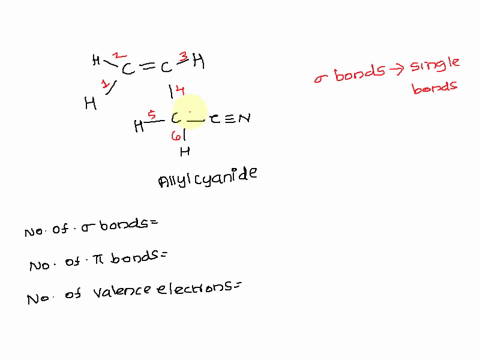 H 2 C = C 3 H
1
H 4
H 5 C — C ≡ N
6
H
Allylcyanide
σ bonds → single
bonds
No. of. σ bonds=
No. of. π bonds=
No. of valence electrons=